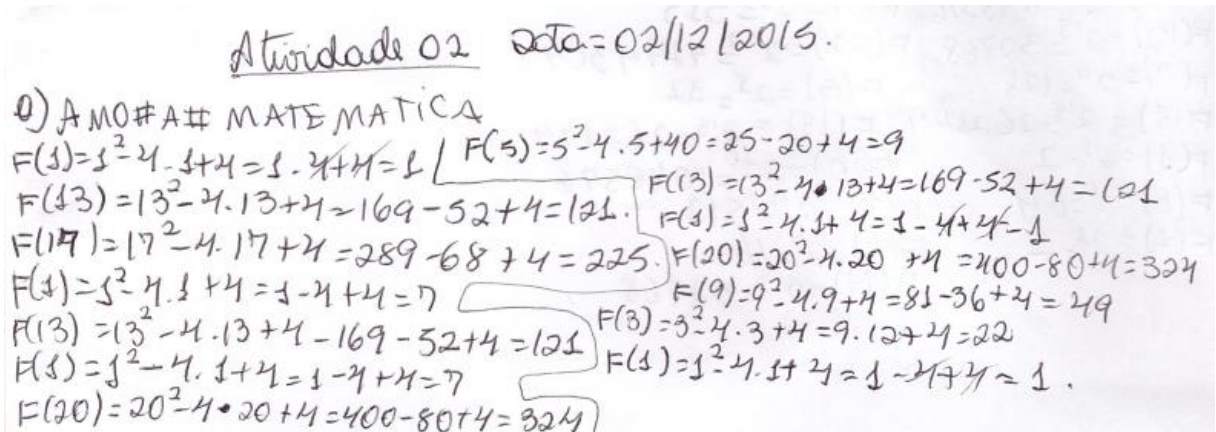 Atividade 02 Data=02/12/2015.
a) AMO#A# MATEMATICA
F(1)=1²-4.1+4=1-4+4=1
F(13)=13²-4.13+4=169-52+4=121.
F(17)=17²-4.17+4=289-68+4=225.
F(1)=1²-4.1+4=1-4+4=7
F(13)=13²-4.13+4-169-52+4=121
F(1)=1²-4.1+4=1-4+4=7
F(20)=20²-4•20+4=400-80+4=324
F(5)=5²-4.5+40=25-20+4=9
F(13)=13²-4•13+4=169-52+4=121
F(1)=1²-4.1+4=1-4+4-1
F(20)=20²-4.20+4=400-80+4=324
F(9)=9²-4.9+4=81-36+4=49
F(3)=3²-4.3+4=9.12+4=22
F(1)=1²-4.1+4=1-4+4=1.